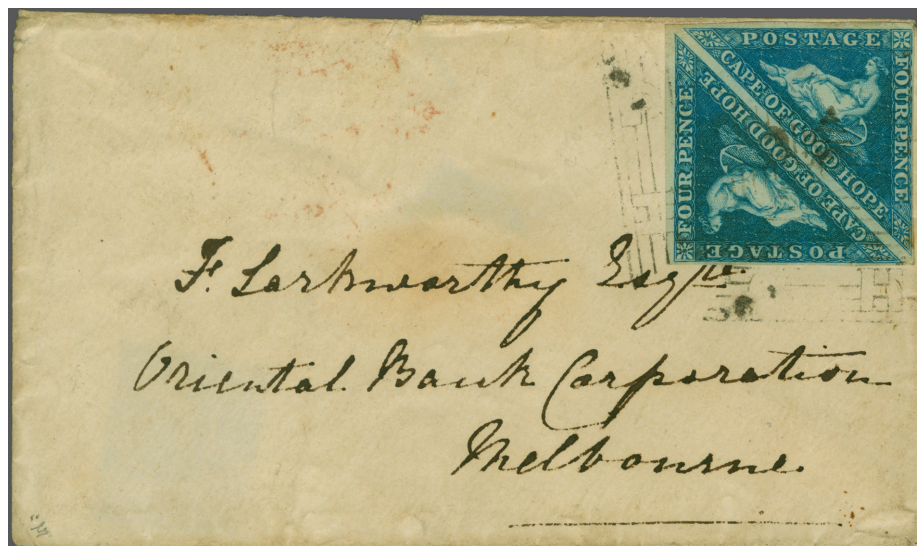 POSTAGE
FOUR PENCE
CAPE OF GOOD HOPE
CAPE OF GOOD HOPE
FOUR PENCE
POSTAGE
F. Larkworthy Esqre
Oriental Bank Corporation
Melbourne.